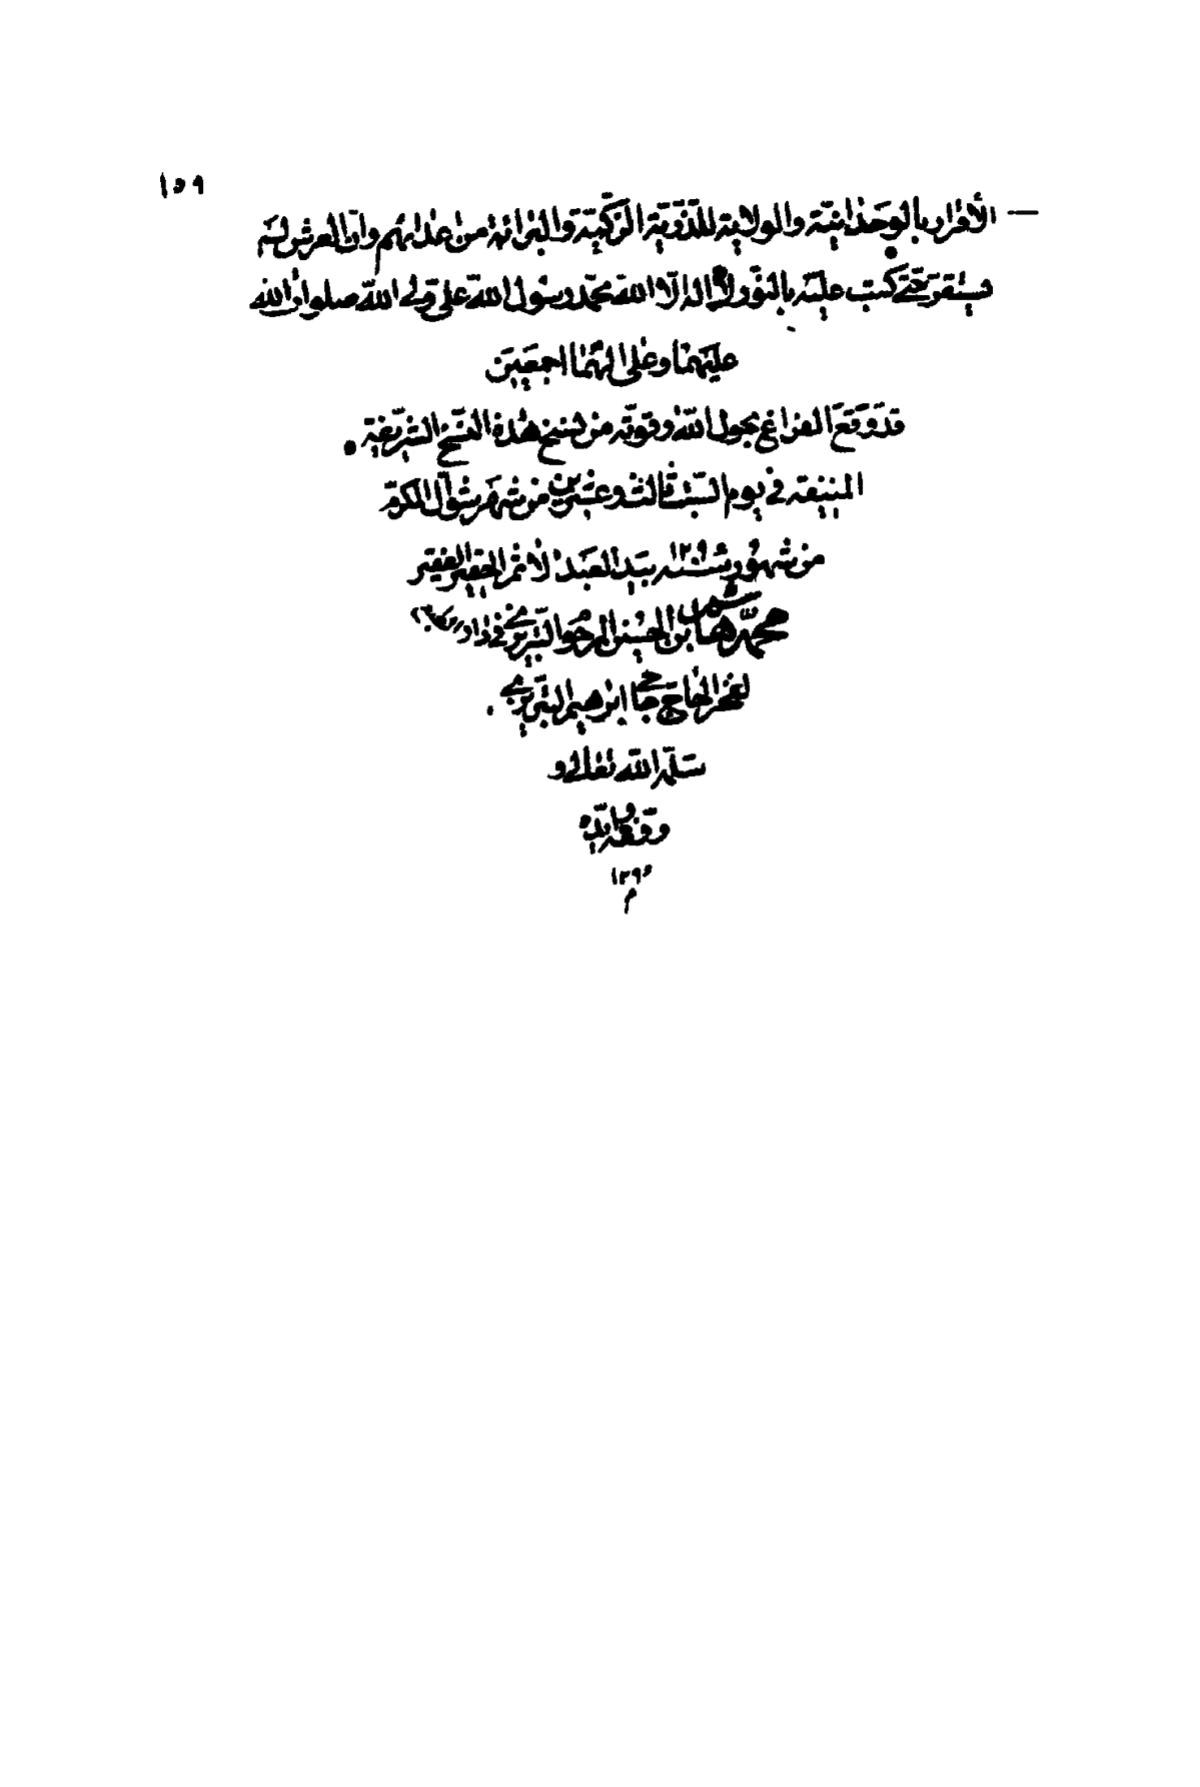 ١٥٩
الأقرار بالوحدانية والولاية للذرية الزكية والبرائة من اعدائهم وان العرش لم
يستقر حتى كتب عليه بالنور لا اله الا الله محمد رسول الله علي ولي الله صلوات الله
عليهما وعلى الهما اجمعين
قد وقع الفراغ بحول الله وقوته من نسخ هذه النسخ الشريفة
المنيفة في يوم السبت ثالث وعشرين من شهر شوال المكرم
من شهور سنة ١٢٩٤ بيد العبد الأثم الحقير الفقير
محمد هاشم بن الحسين التبريزي في
لفخر الحاج حاجي ابرهيم التبريزي
سلمه الله تعالى و
وفقه وايده
١٢٩٤
م